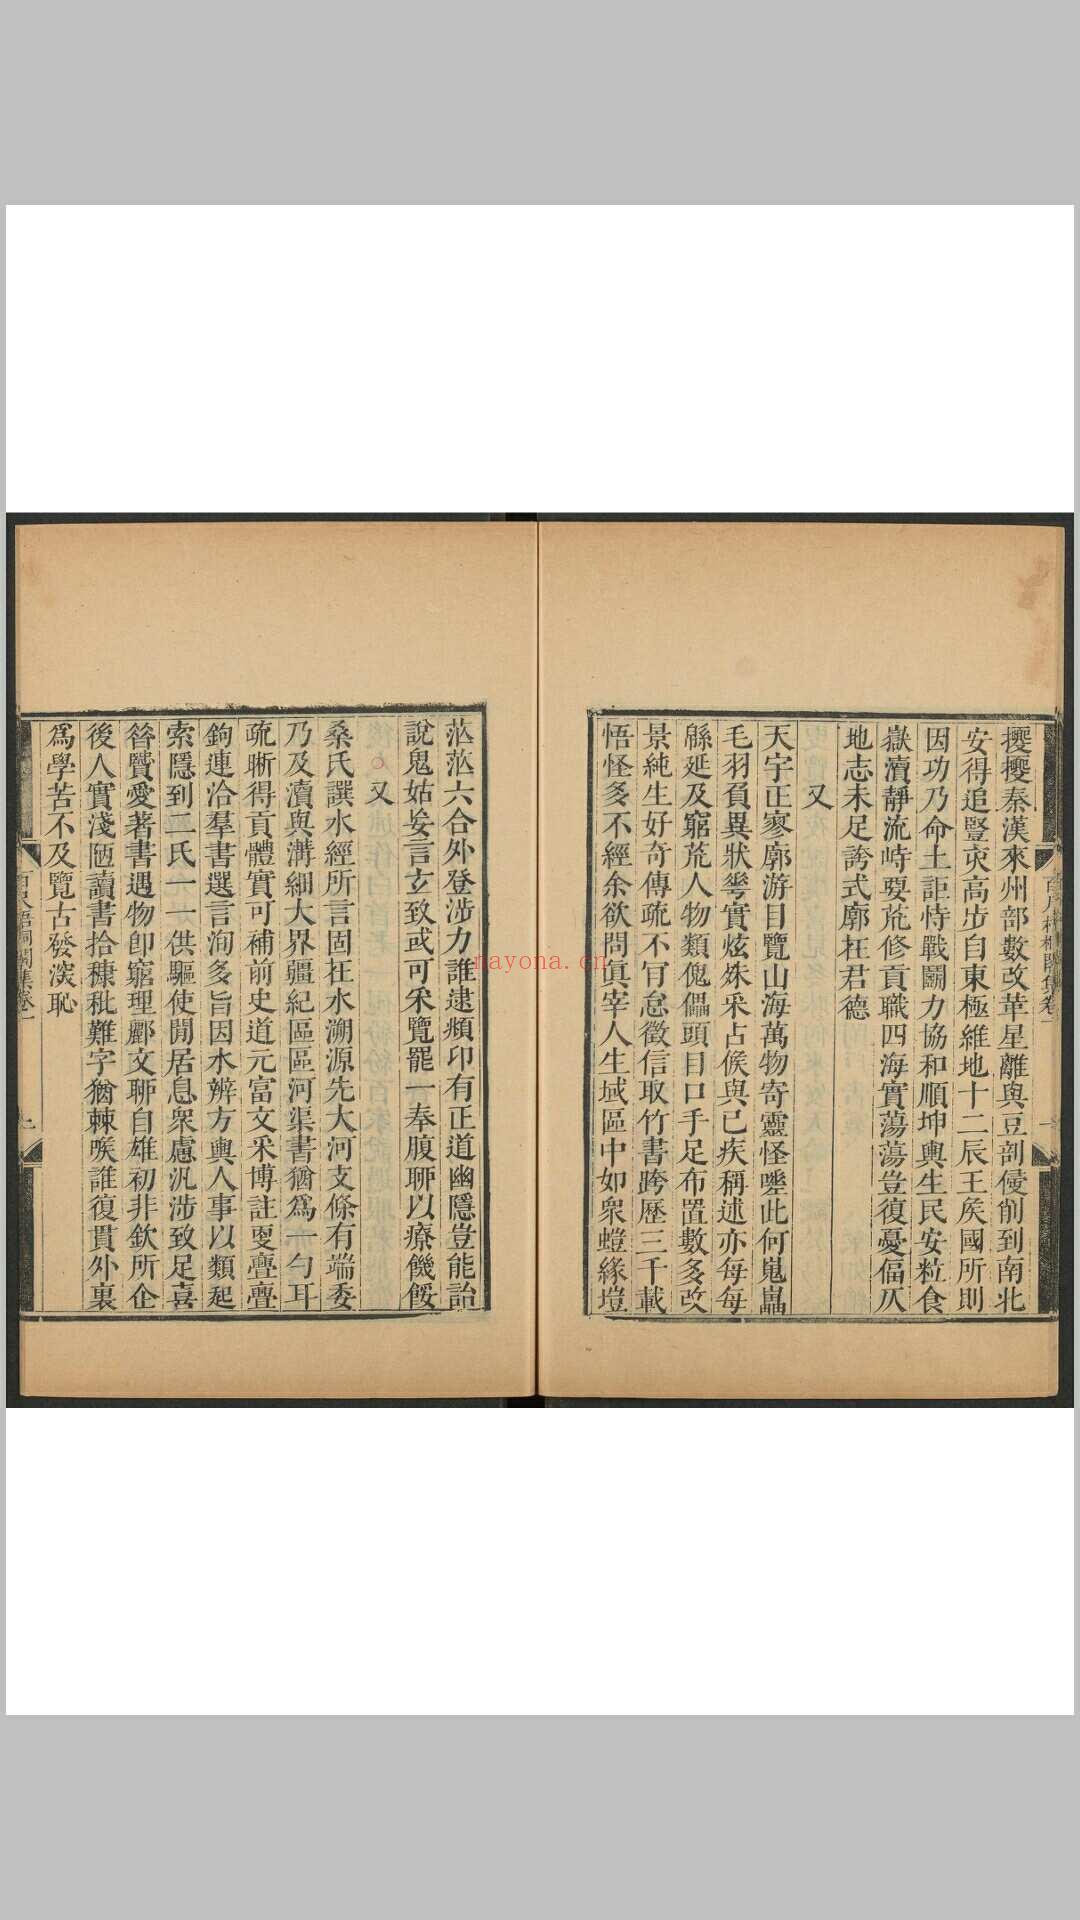 擾擾秦漢來州部數改革星離與豆剖侵削到南北
安得追豎亥高步自東極維地十二辰王矦國所則
因功乃命土詎恃戰鬭力協和順坤輿生民安粒食
嶽瀆靜流峙要荒修貢職四海實蕩蕩豈復憂偪仄
地志未足誇式廓在君德
又
天宇正寥廓游目覽山海萬物寄靈怪嗟此何嵬畾
毛羽負異狀蕚實炫姝采占候與已疾稱述亦每每
緜延及窮荒人物類傀儡頭目口手足布置數多改
景純生好奇傳疏不肎怠徵信取竹書跨歷三千載
悟怪多不經余欲問眞宰人生域區中如衆螘緣塏
茫茫六合外登涉力誰逮頫卬有正道幽隱豈能詒
說鬼姑妄言玄致或可采覽罷一奉腹聊以療饑餒
又
桑氏譔水經所言固在水溯源先大河支條有端委
乃及瀆與溝細大界疆紀區區河渠書猶爲一勺耳
疏晰得貢體實可補前史道元富文采博註更亹亹
鉤連洽羣書選言洵多旨因水辨方輿人事以類起
索隱到二氏一一供驅使閒居息衆慮汎涉致足喜
昝贒愛著書遇物卽窮理酈文聊自雄初非欽所企
後人實淺陋讀書拾穅秕難字猶棘喉誰復貫外裏
爲學苦不及覽古發深恥
百尺梧桐閣集卷一
nayona.cn